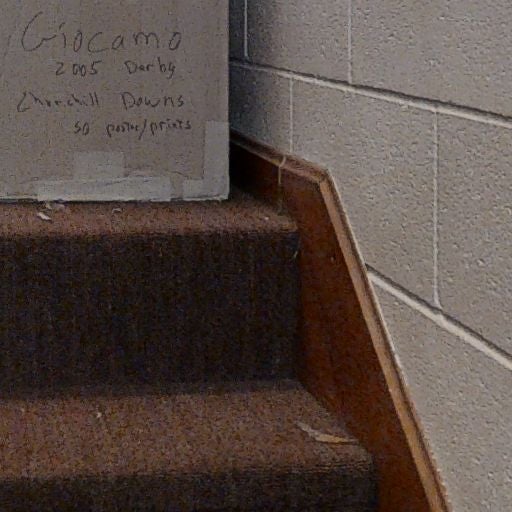 Giocamo
2005 Derby
Churchill Downs
50 poster/prints